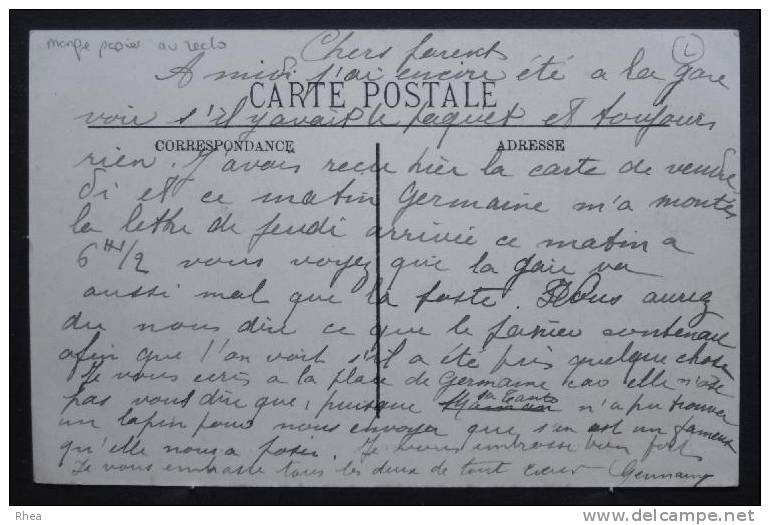 manque papier au recto
L
Chers parents
A midi j'ai encire été a la gare
CARTE POSTALE
voir s'il y avait le paquet et toujours
CORRESPONDANCE
ADRESSE
rien. J'avais recu hier la carte de vendre
di et ce matin Germaine m'a montés
la lettre de jeudi arrivée ce matin a
6 H 1/2 vous voyez que la gare va
aussi mal que la poste. Vous auriez
du nous dire ce que le panier contenait
afin que l'on voit s'il a été pris quelque chose
Je vous ecris a la place de Germaine car elle n'ose
pas vous dire que, puisque sa tante n'a pu trouver
un lapin pour nous envoyer que s'en est un fameux
qu'elle nous a poser. Je vous embrasse bien fort
Je vous embrasse tous les deux de tout cœur Germaine
Rhea
www.delcampe.net